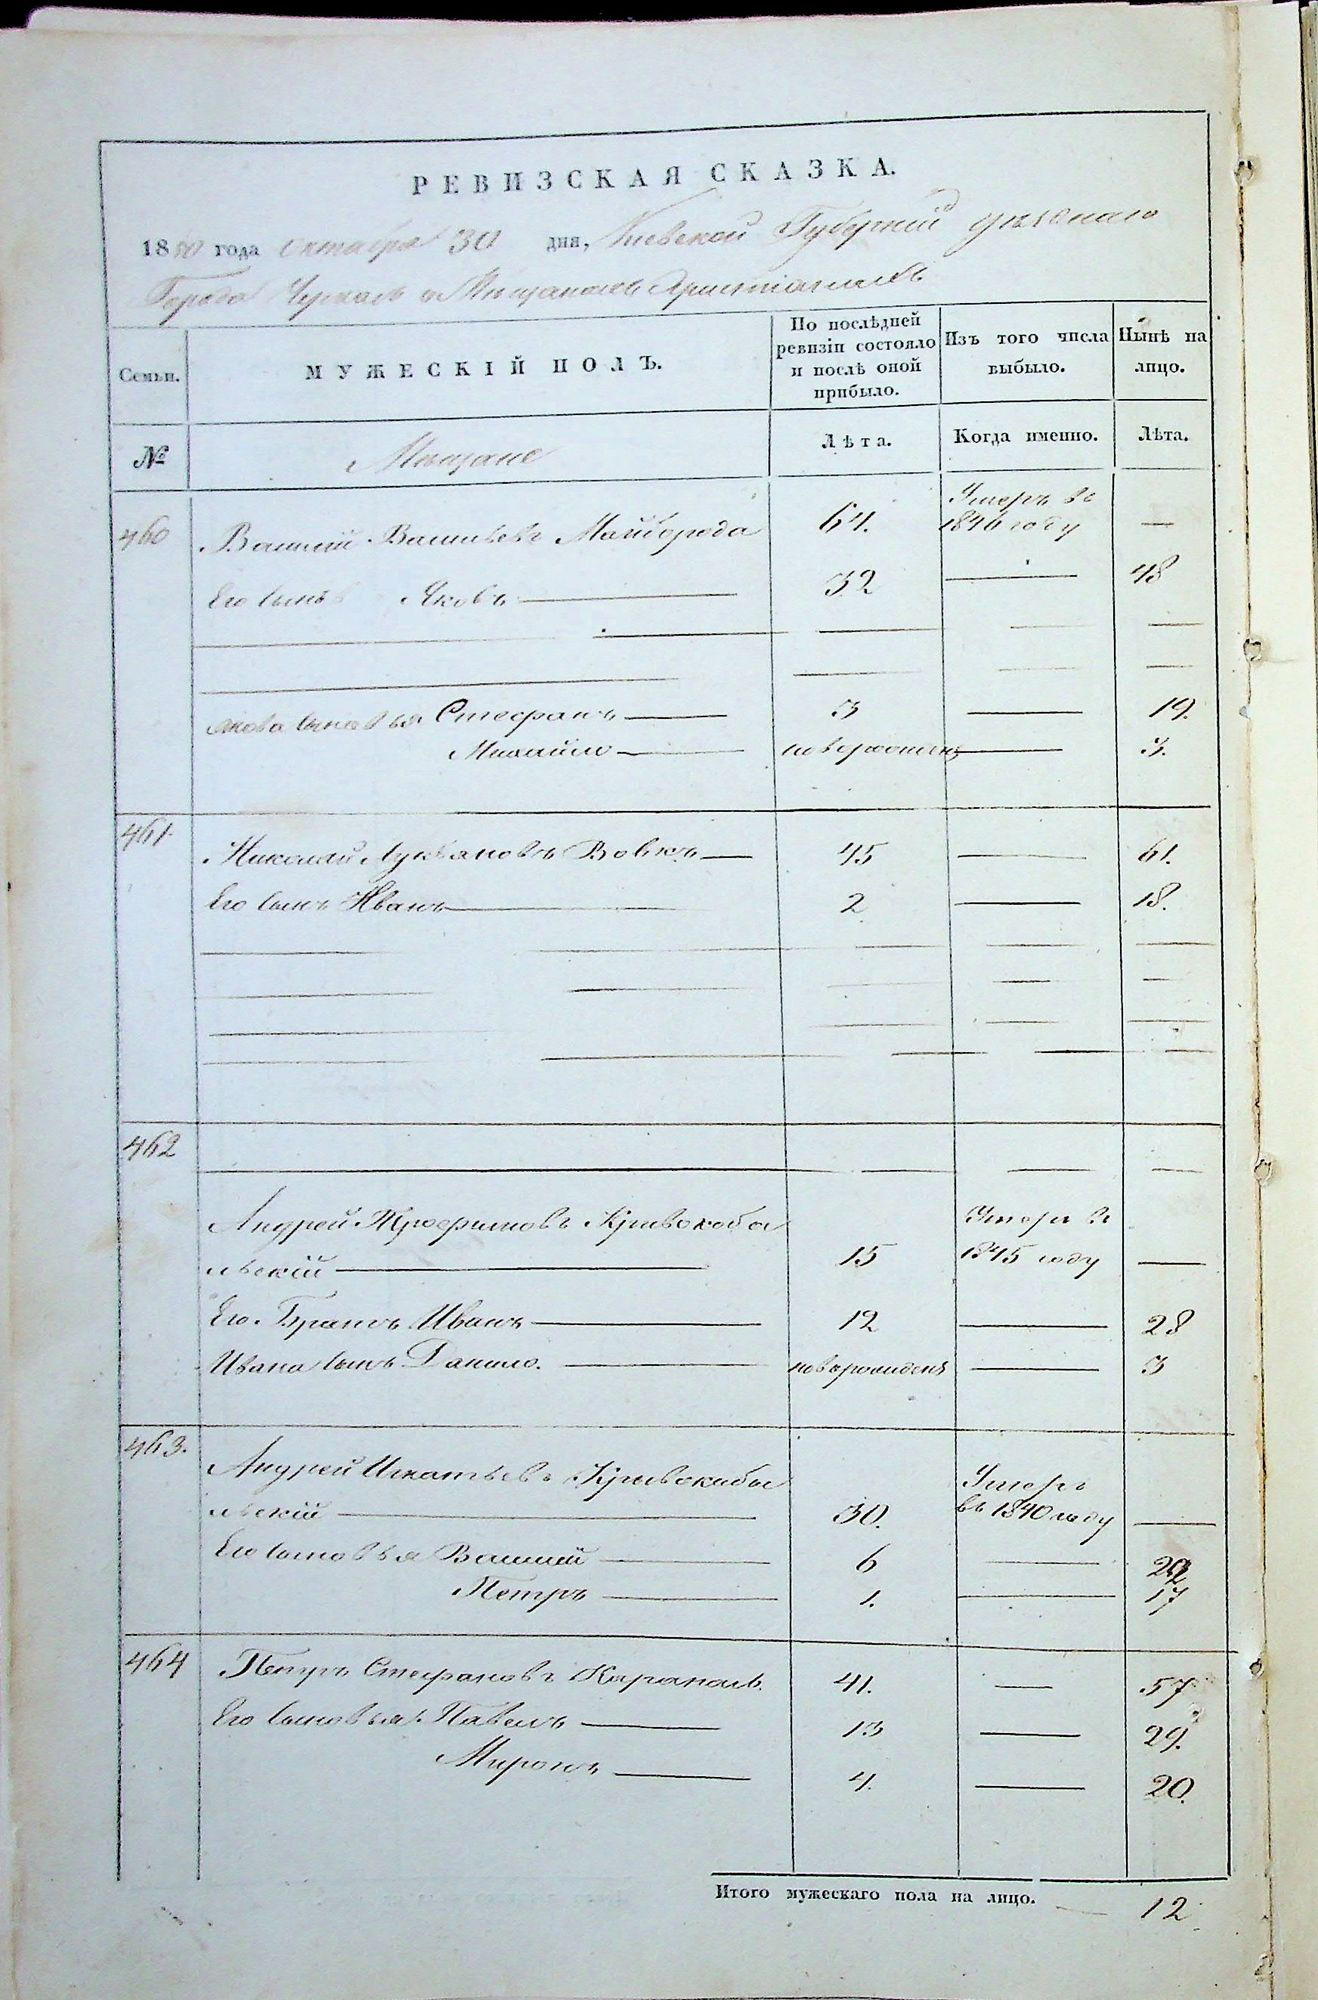 РЕВИЗСКАЯ СКАЗКА.
1850 года Октября 30 дня, Киевской Губерніи уѣзднаго
Города Черкасъ о Мѣщанахъ Христіанахъ
Семьи. МУЖЕСКІЙ ПОЛЪ. По послѣдней ревизіи состояло и послѣ оной прибыло. Изъ того числа выбыло. Нынѣ на лицо.
№ Мѣщане Лѣта. Когда именно. Лѣта.
460 Василій Васильевъ Майборода 64. Умеръ въ 1846 году —
Его сынъ Яковъ 32 — 48
Якова сыновья Стефанъ 3 — 19.
Михайло новорожденъ — 3.
461. Николай Лукьяновъ Вовкъ 45 — 61.
Его сынъ Иванъ 2 — 18.
462
Андрей Трофимовъ Кривокобы
льскій 15 Умеръ въ 1845 году —
Его Братъ Иванъ 12 — 28
Ивана сынъ Данило. новорожденъ — 3
463. Андрей Игнатьевъ Кривокобы
льскій 30. Умеръ въ 1840 году —
Его сыновья Василій 6 — 22
Петръ 1. — 17
464 Петръ Стефановъ Карналь. 41. — 57
Его сыновья Павелъ 13 — 29.
Миронъ 4. — 20.
Итого мужескаго пола на лицо. 12